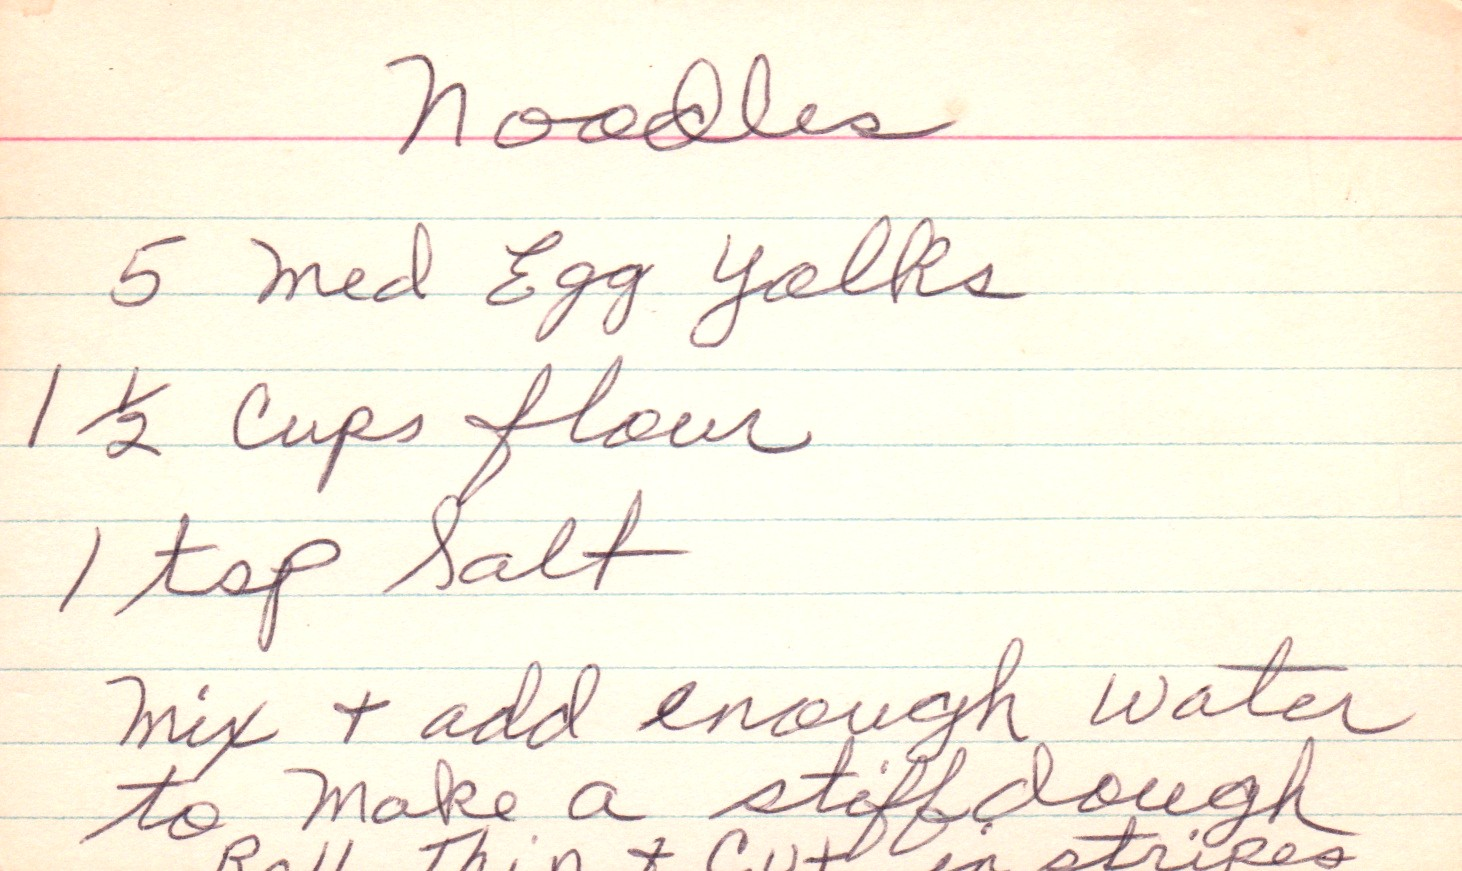 Noodles
5 Med Egg Yolks
1 ½ Cups flour
1 tsp Salt
Mix + add enough water
to Make a stiff dough
Roll Thin + Cut in stripes